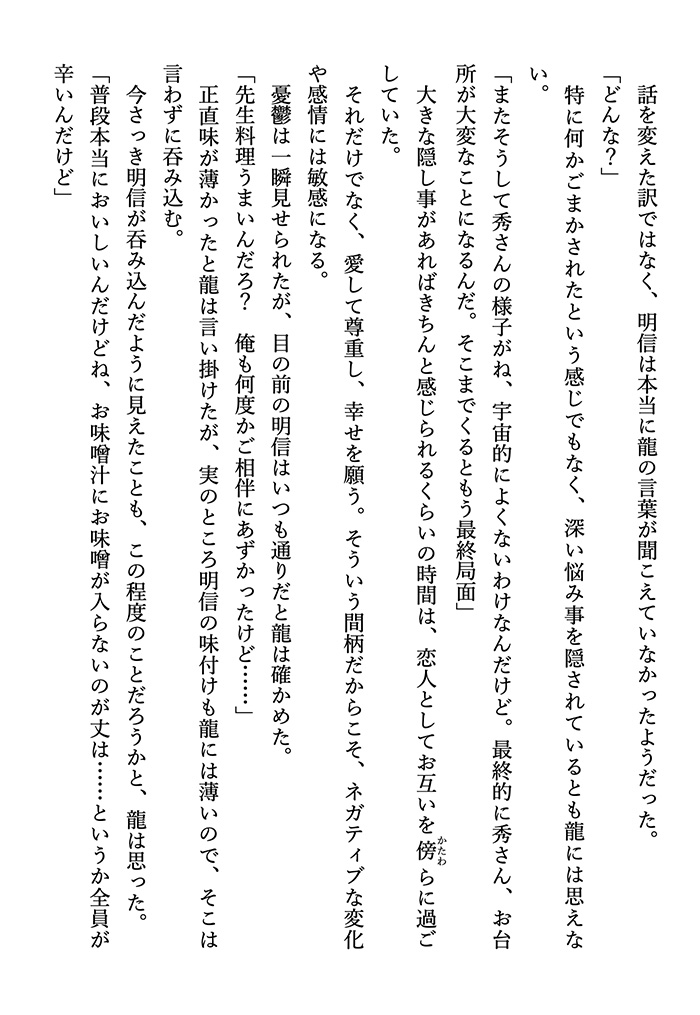 話を変えた訳ではなく、明信は本当に龍の言葉が聞こえていなかったようだった。
「どんな？」
特に何かごまかされたという感じでもなく、深い悩み事を隠されているとも龍には思えな
い。
「またそうして秀さんの様子がね、宇宙的によくないわけなんだけど。最終的に秀さん、お台
所が大変なことになるんだ。そこまでくるともう最終局面」
大きな隠し事があればきちんと感じられるくらいの時間は、恋人としてお互いを傍らに過ご
していた。
それだけでなく、愛して尊重し、幸せを願う。そういう間柄だからこそ、ネガティブな変化
や感情には敏感になる。
憂鬱は一瞬見せられたが、目の前の明信はいつも通りだと龍は確かめた。
「先生料理うまいんだろ？　俺も何度かご相伴にあずかったけど……」
正直味が薄かったと龍は言い掛けたが、実のところ明信の味付けも龍には薄いので、そこは
言わずに呑み込む。
今さっき明信が呑み込んだように見えたことも、この程度のことだろうかと、龍は思った。
「普段本当においしいんだけどね、お味噌汁にお味噌が入らないのが丈は……というか全員が
辛いんだけど」
かたわ